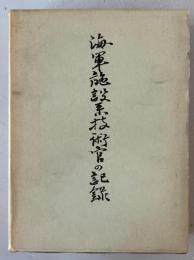 海軍施設系技術官の記録